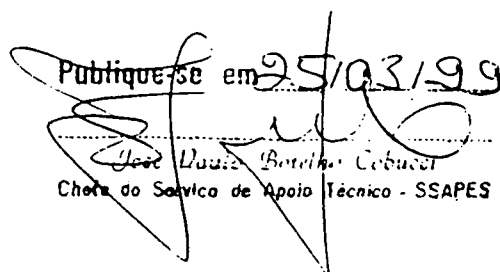 Publique-se em 25/03/99
José Paulo Botelho Cobucci
Chefe do Serviço de Apoio Técnico - SSAPES